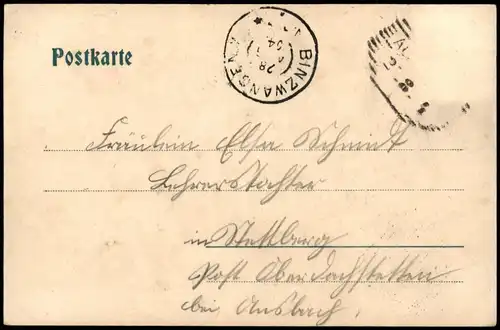 Postkarte
BINZWANGEN
28
04
Fräulein Elsa Schmidt
Lehrerstochter
in Stettberg
Post Oberdachstetten
bei Ansbach.